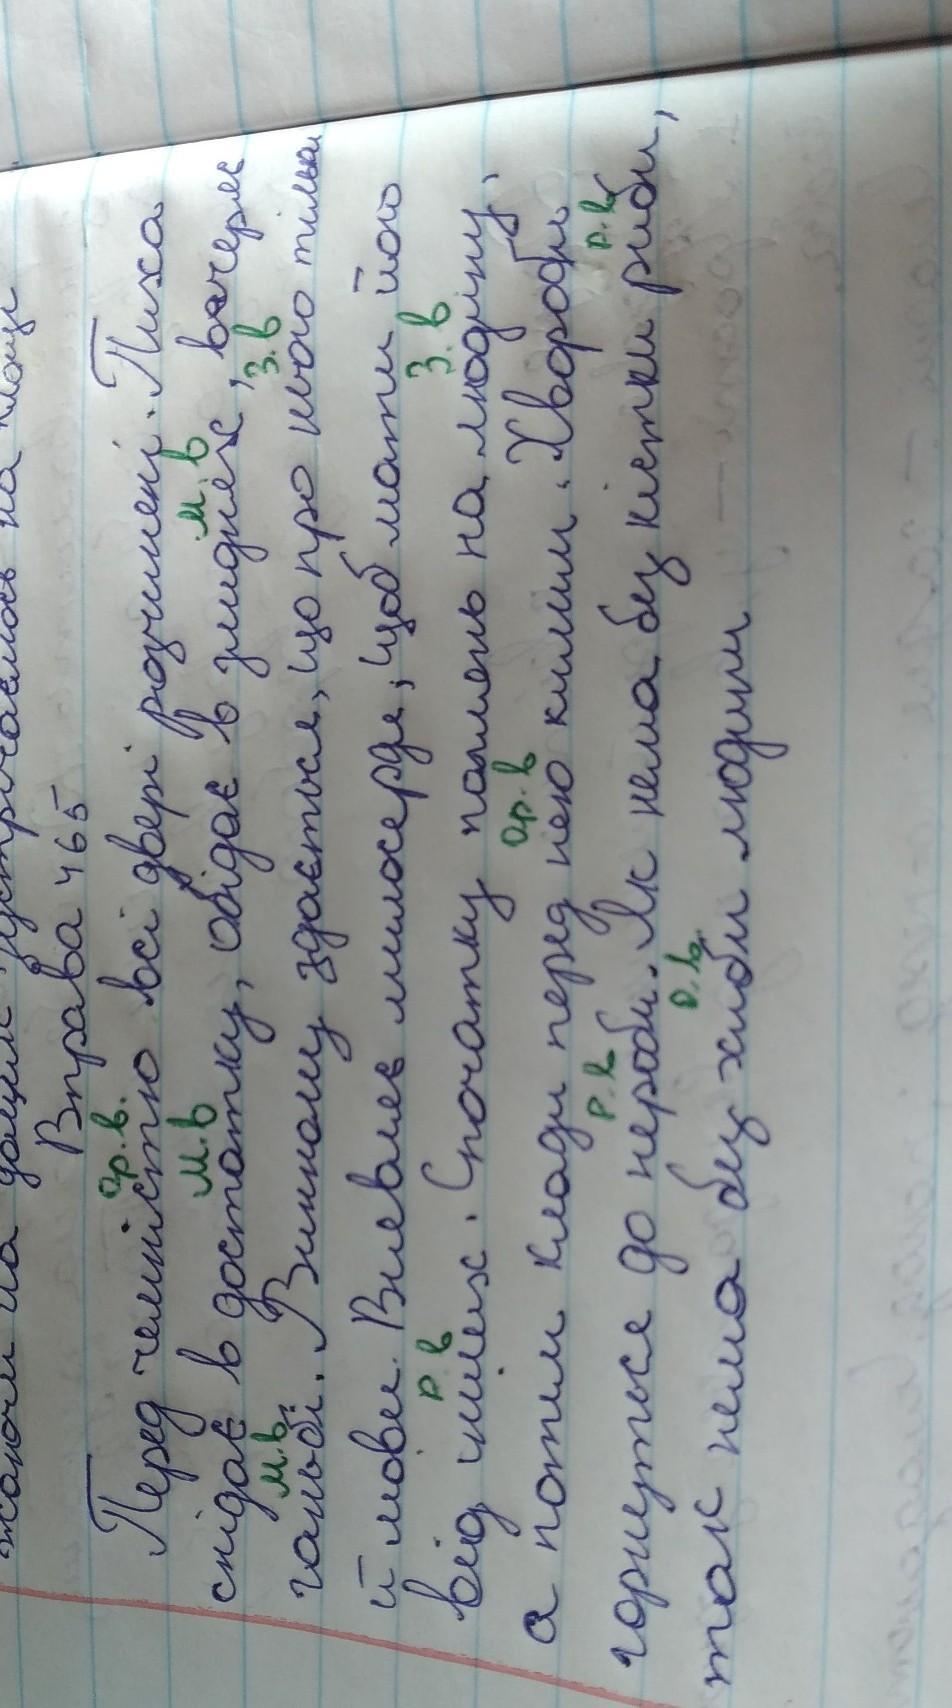 Вправа 465
Ор.в.
Перед чемністю всі двері розчинені. Пиха
М.в М.в
снідає в достатку, обідає в злиднях, вечеряє
М.в. З.в
в ганьбі. Винному здається, що про нього тільки
й мови. Виявляв милосердя, щоб мати його
Р.в З.в
від інших. Спочатку поглянь на людину,
Ор.в
а потім клади перед нею килим. Хвороби
Р.в Р.в
горнуться до нероби. Як нема без кістки риби,
Р.в.
так нема без хиби людини